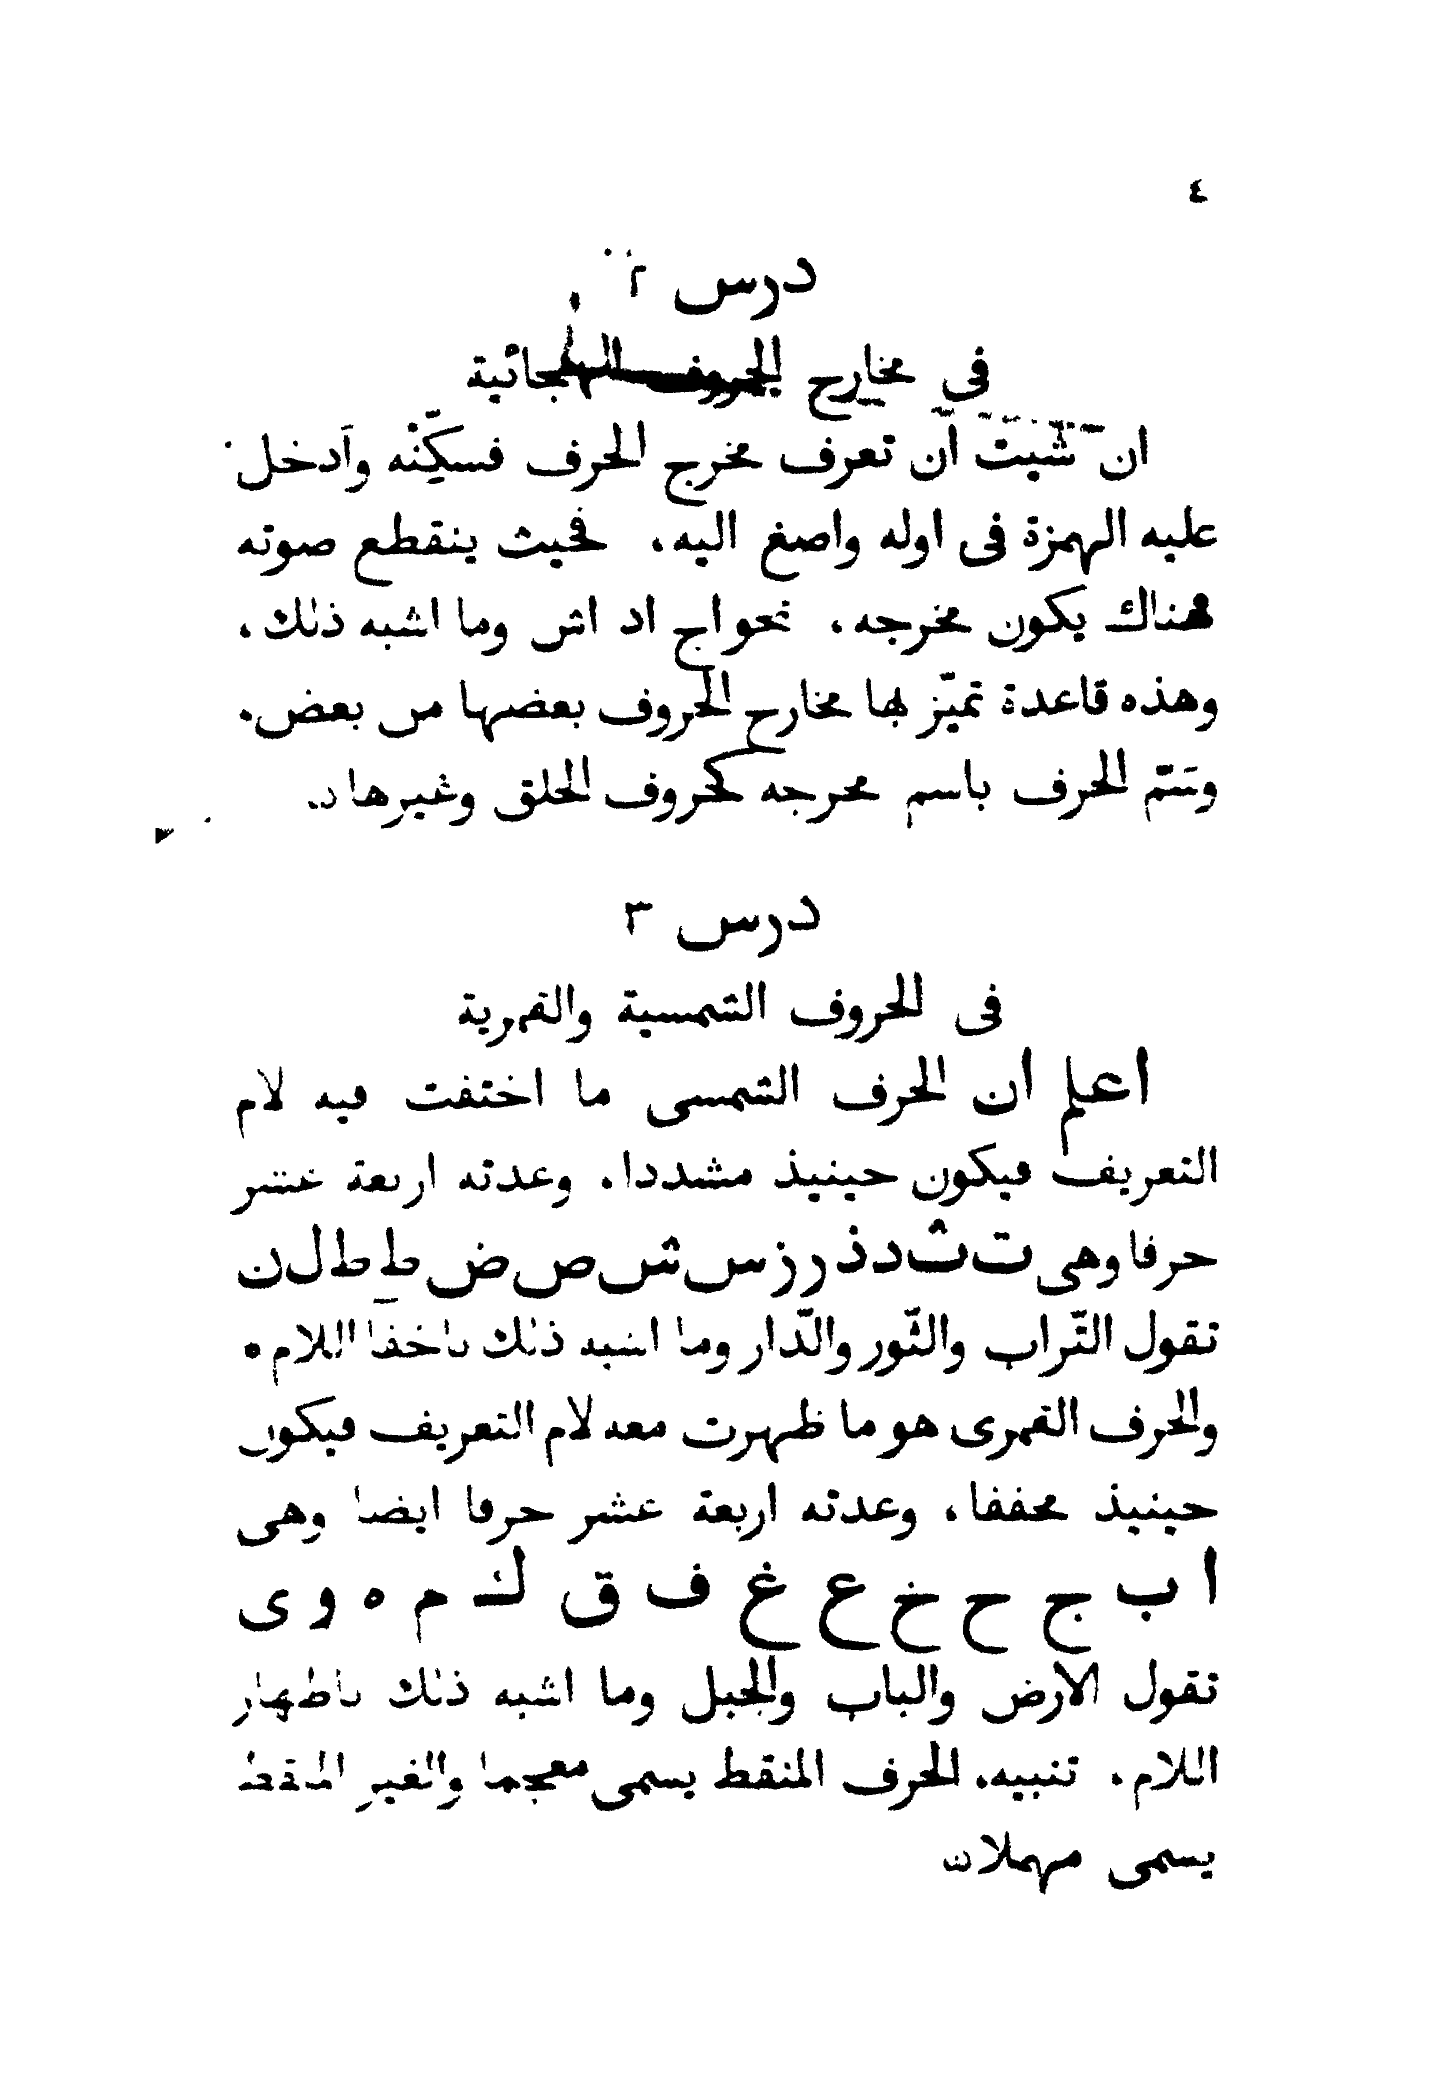 ٤
درس ٢
فى مخارج الحروف الهجائية
ان شيت ان تعرف مخرج الحرف فسكِّنْه وآدخل
عليه الهمزة فى اوله واصغ اليه. فحيث ينقطع صوته
فهناك يكون مخرجه. نحو اج اد اش وما اشبه ذلك.
وهذه قاعدة تميّز بها مخارج الحروف بعضها من بعض.
وسَمّ الحرف باسم مخرجه كحروف الحلق وغيرها
درس ٣
فى الحروف الشمسية والقمرية
اعلم ان الحرف الشمسى ما اختفت فيه لام
التعريف فيكون حينيذ مشددا. وعدته اربعة عشر
حرفا وهى ت ث د ذ ر ز س ش ص ض ط ظ ل ن
تقول التّراب والثّور والدّار وما اشبه ذلك باخفا اللام ٥
والحرف القمرى هو ما ظهرت معه لام التعريف فيكون
حينيذ مخففا. وعدته اربعة عشر حرفا ايضا وهى
ا ب ج ح خ ع غ ف ق ك م ه و ى
تقول الارض والباب والجبل وما اشبه ذلك باظهار
اللام. تنبيه. الحرف المنقط يسمى معجما والغير المنقط
يسمى مهملا